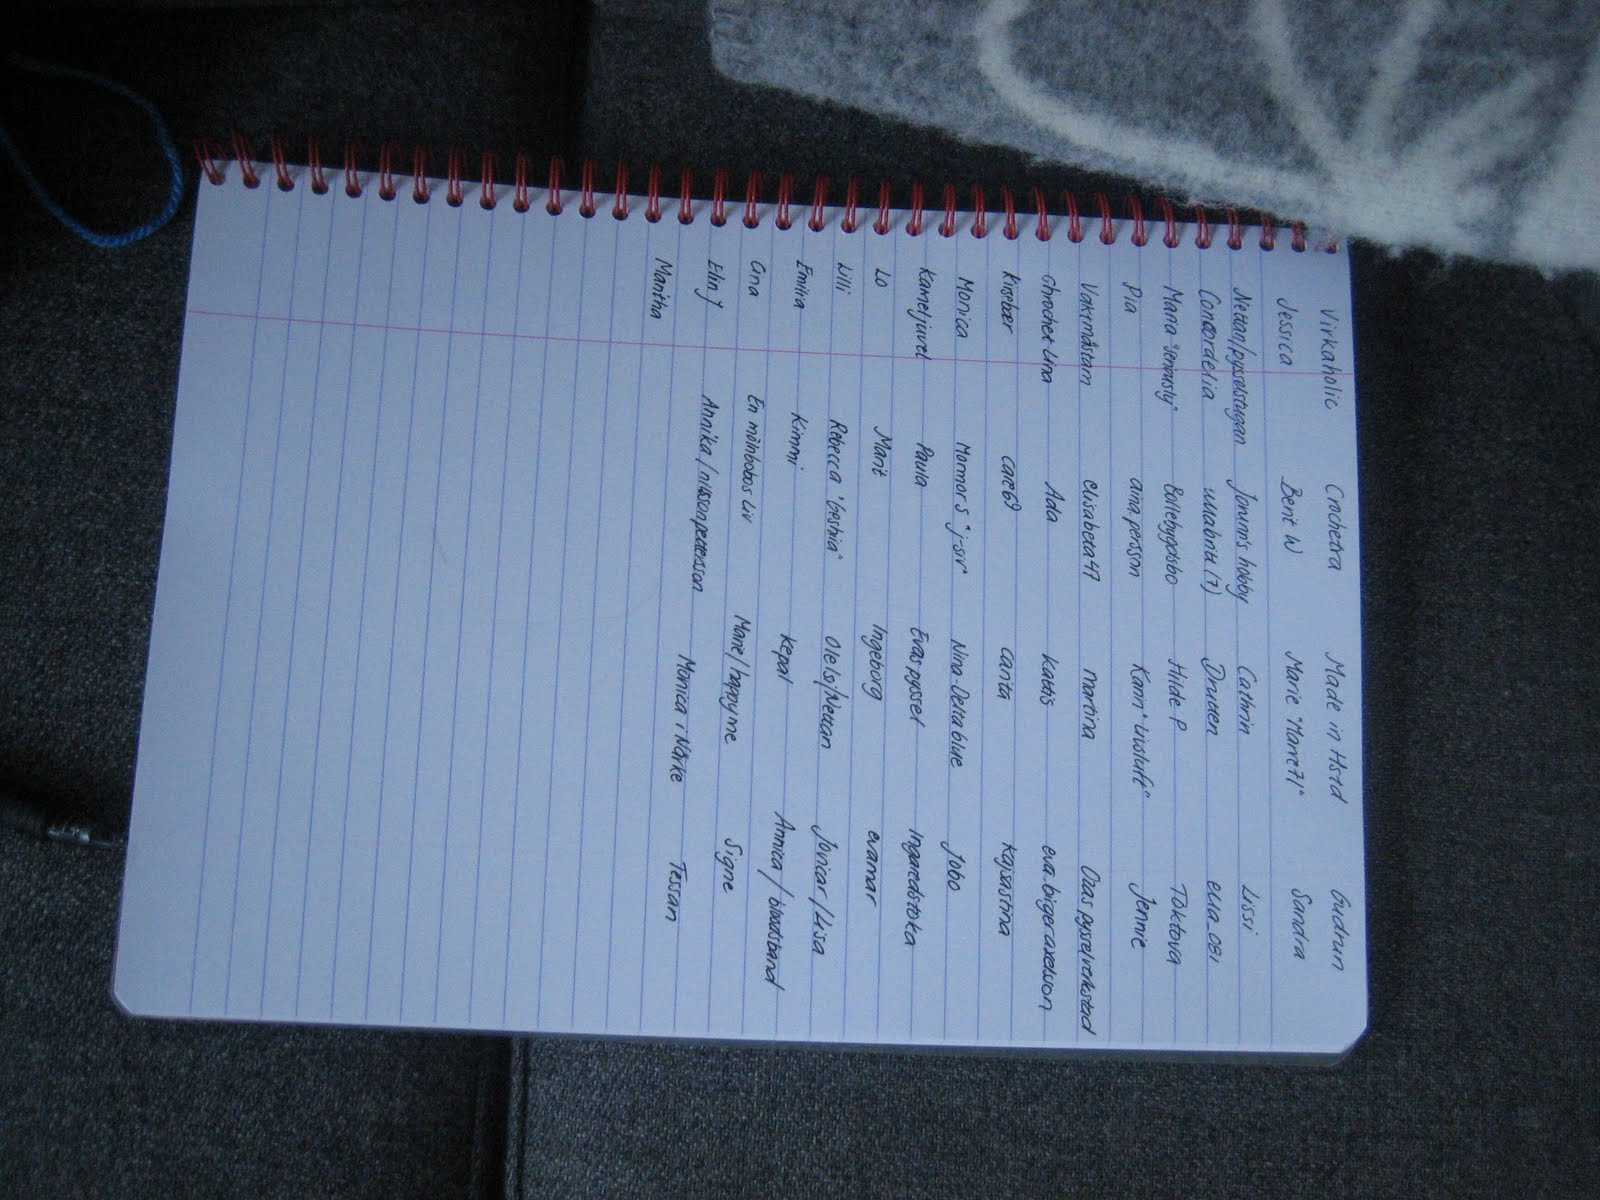 Virkaholic Crochetra Made in Hstd Gudrun
Jessica Berit W Marie "Marre71" Sandra
Nettan/pysselstugan Jorunn's hobby Cathrin Lissi
Conordelia (7) Druden
Maria "seriously" Bollebygdsbo Hilde P Toktova
Pia aina.persson Karin "Livsluft" Jennie
Vakrmåstarn elisabeta47 martina Osas pysselverkstad
chrochet-Lina Ada kattis eva.birger.axelsson
Kissebær care69 carita kajsastina
Monica Mormor S "j-siv" Nina-Dettablue Jobo
Kameljuvel Paula Evas pyssel Ingaredstoka
Lo Marit Ingeborg evamar
Lilli Rebecca "Geshia" Olelsj/Nettan Jovicar/Lisa
Emiira Kimmi kepal Annica/blaadsband
Gina En mölnbobos liv Marie/happy me Signe
Elin J Annika/nilssonpettersson Monica i Närke Tessan
Maritha